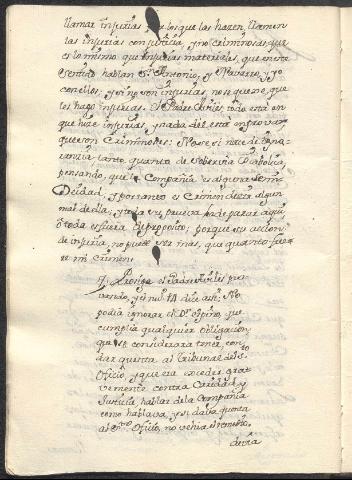 llamar injurias, a los que las hazen, llamen
las injurias con justicia, y no criminosas, que
es lo mismo que injurias materiales, que en este
sentido hablan Sn. Antonio, y Navarro, y yo
con ellos; y si no son injurias, no se quexe, que
les hago injurias. El Padre Aviles todo está en
que hize injurias, y nada del está en provar,
que son Criminosas: No se si nace de
tanto, quanto de sobervia Diabolica,
pensando, que la Compañia es alguna
Deidad, y por tanto es Crimen dezir algun
mal de ella; y toda su prueva ha de parar aqui
ô toda es fuera de proposito; porque su accion
de injuria, no puede ser mas, que quanto fue-
re mi Crimen.
7. Prosigue el Padre Aviles pro-
vando, y en nu. 14 dize assi: No
podia ignorar el Dr. Espino, que
cumplia qualquier obligacion,
que se considerara tener, con
dar quenta al Tribunal del So.
Oficio, y que era exceder grav
vemente contra Caridad, y
Justicia, hablar de la Compañia
como hablava, y si dava quenta
al Sto. Oficio, no tenia
devia